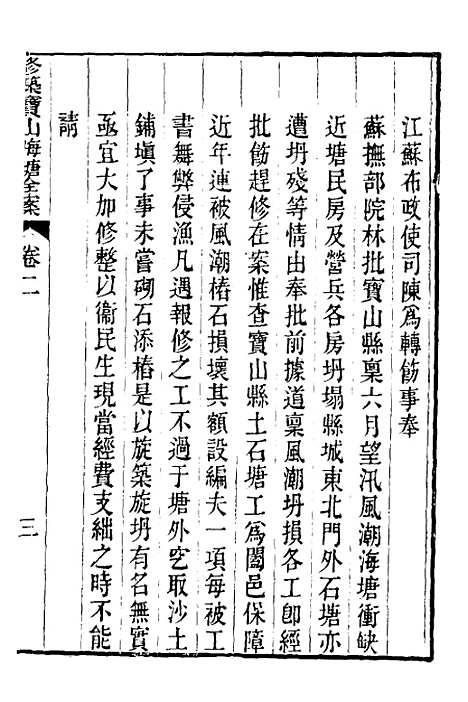 江蘇布政使司陳爲轉飭事奉
蘇撫部院林批寶山縣稟六月望汛風潮海塘衝缺
近塘民房及營兵各房坍塌縣城東北門外石塘亦
遭坍殘等情由奉批前據道稟風潮坍損各工卽經
批飭趕修在案惟查寶山縣土石塘工爲闔邑保障
近年連被風潮樁石損壞其額設編夫一項每被工
書舞弊侵漁凡遇報修之工不過于塘外空取沙土
鋪塡了事未嘗砌石添樁是以旋築旋坍有名無實
亟宜大加修整以衞民生現當經費支絀之時不能
請
修築寶山海塘全案
卷二
三